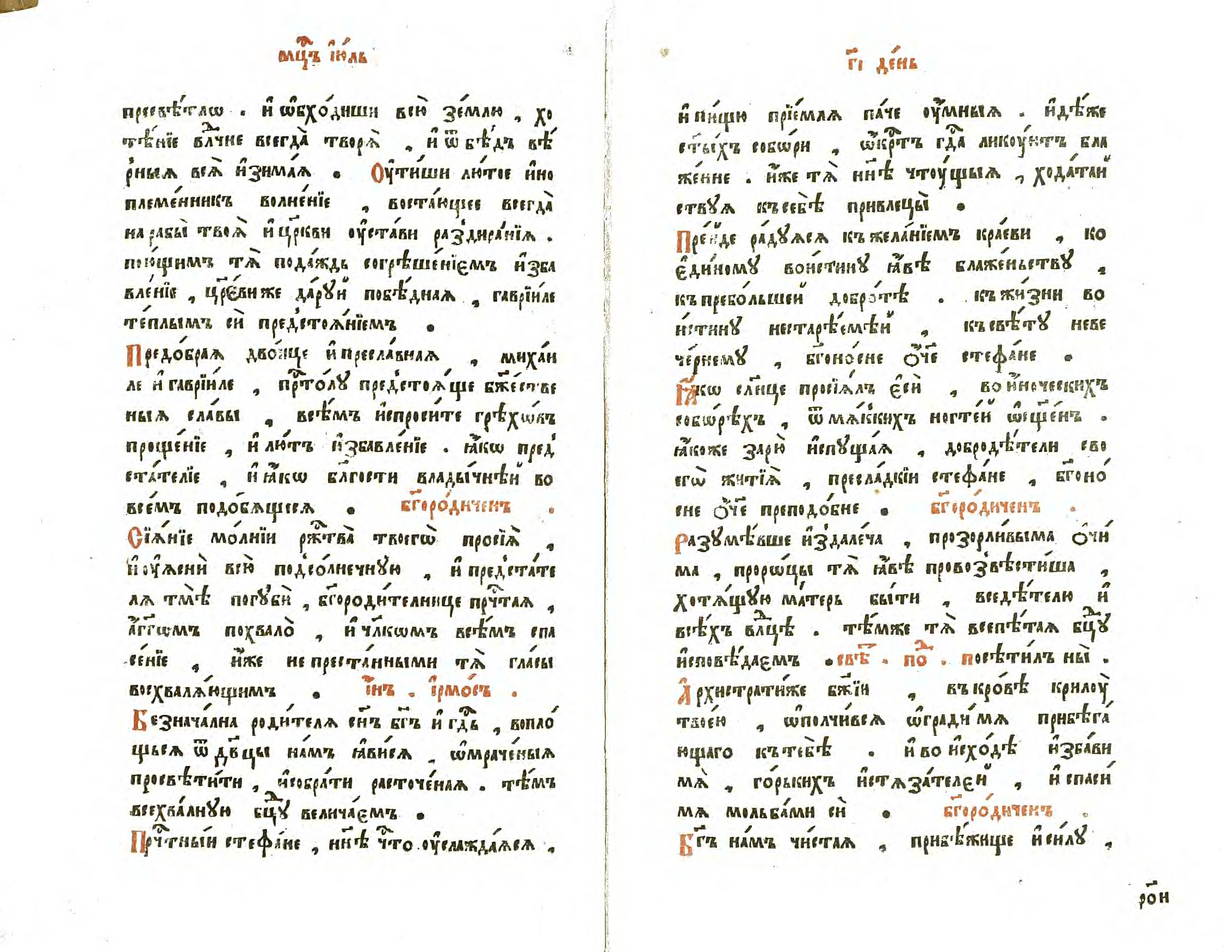 мц҃ъ і҆ю́ль
пресвѣ́тлѡ . и҆ ѡ҆бхо́диши всю̀ зе́млю , хо
тѣ́нїе влⷣчне всегда̀ творѧ̀ , и҆ ѿ бѣ́дъ вѣ́
рныѧ всѧ̀ и҆зима́ѧ . Оу҆тиши лю́тое и҆но
племе́нникъ волне́нїе , востаю́щее всегда̀
на рабы̀ твоѧ̀ и҆ цр҃кви оу҆ста́ви раздира́нїѧ .
пою́щимъ тѧ̀ пода́ждь согрѣше́нїємъ и҆зба
вле́нїе , цр҃є́ви же да́руй побѣ́днаѧ , гаврїи́ле
те́плымъ сѝ предстоѧ́нїемъ .
Предо́браѧ дво́ице и҆ пресла́внаѧ , михаи́
ле и҆ гаврїи́ле , прⷭто́лу предстоѧ́ще бж҃е́стве
ныѧ сла́вы , всѣ́мъ и҆спроси́те грѣхѡ́въ
проще́нїе , и҆ лю́тъ и҆збавле́нїе . ꙗ҆́кѡ пред
ста́телїе , и҆ ꙗ҆́кѡ бл҃гости влады́чнѣй во
всѣ́мъ подо́бѧщесѧ . бг҃оро́диченъ .
Сїѧ́нїе мо́лнїи ржⷭтва̀ твоегѡ̀ просїѧ̀ ,
и҆ оу҆ѧснѝ всю̀ подсо́лнечную , и҆ предста́те
лѧ тмѣ̀ погубѝ , бг҃ороди́телнице прⷱтаѧ ,
а҆́гг҃лѡмъ похвало̀ , и҆ чл҃кѡмъ всѣ́мъ спа
се́нїе , и҆́же непреста́нными тѧ̀ гла́сы
восхвалѧ́ющимъ . і҆́нъ . і҆рмо́съ .
Безнача́лна роди́телѧ сн҃ъ бг҃ъ и҆ гдⷭь , вопло́
щьсѧ ѿ дв҃цы на́мъ ꙗ҆ви́сѧ , ѡ҆мраче́ныѧ
просвѣти́ти , и҆ собра́ти расточе́наѧ . тѣ́мъ
всехва́лную бцⷣу велича́ємъ .
Прⷱтный стефа́не , нн҃ѣ что̀ оу҆слажда́ѧсѧ ,
г҃і де́нь
и҆ пи́щю прїе́млѧ па́че оу҆́мныѧ . и҆дѣ́же
ст҃ы́хъ собо́ри , ѡ҆́крⷭтъ гдⷭа лику́ютъ бла
же́нне . и҆̀же тѧ̀ нн҃ѣ чтоу́щыѧ , хода́тай
ствуѧ къ себѣ̀ привлецы̀ .
Пре́йде ра́дуѧсѧ къ жела́нїемъ кра́еви , ко
є҆ди́ному вои́стину ꙗ҆́вѣ блаже́ньству ,
къ пребо́льшей добро́тѣ . къ жи́зни во
и́стину нестарѣ́емѣй , къ свѣ́ту неве
че́рнему , бг҃оно́сне ѻ҆́ч҃е стефа́не .
Ꙗ҆́кѡ сл҃нце просїѧ́лъ є҆сѝ , во и҆́ноческихъ
собо́рѣхъ , ѿ мѧ́кихъ ногте́й ѡ҆сщ҃е́нъ .
ꙗ҆́коже зарю̀ и҆спуща́ѧ , добродѣ́тели сво
егѡ̀ житїѧ̀ , пресла́дкїи стефа́не , бг҃оно́
сне ѻ҆́ч҃е преподо́бне . бг҃оро́диченъ .
Разумѣ́вше и҆здале́ча , прозорли́выма ѻ҆чи́
ма , проро́цы тѧ̀ ꙗ҆́вѣ провозвѣсти́ша ,
хотѧ́щую ма́терь бы́ти , вседѣ́телю и҆
всѣ́хъ влⷣцѣ . тѣ́мже тѧ̀ всепѣ́таѧ бцⷣу
и҆сповѣ́даємъ . свѣ̑ . по̑ . посѣти́лъ ны̀ .
Архистрати́же бж҃їи , въ кро́вѣ крилоу̀
твоє́ю , ѡ҆полчи́всѧ ѡ҆гради́ мѧ прибѣга́
ющаго къ тебѣ̀ . и҆ во и҆схо́дѣ и҆зба́ви
мѧ̀ , го́рькихъ и҆стѧза́телєй , и҆ спаси́
мѧ мольба́ми сѝ . бг҃оро́диченъ .
Бг҃ъ на́мъ чи́стаѧ , прибѣ́жище и҆ си́лу ,
ро҃и